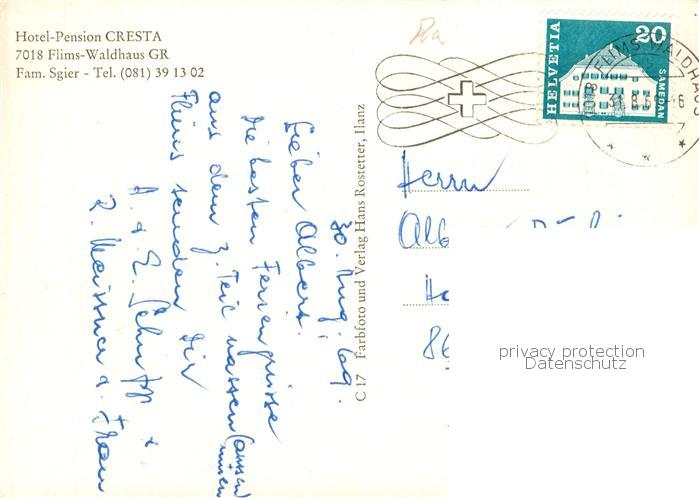 Hotel-Pension CRESTA
7018 Flims-Waldhaus GR
Fam. Sgier - Tel. (081) 39 13 02
HELVETIA
20
SAMEDAN
FLIMS WALDHAUS
31.8.6
C 17 Farbfoto und Verlag Hans Rostetter, Ilanz
30. Aug. 69.
Lieber Albert.
Die besten Feriengrüsse
aus dem z. Teil nassen (aussen
innen)
Flims senden Dir
A. & E. +
R. Meissner a. Frau
Herrn
Alb
86
privacy protection
Datenschutz